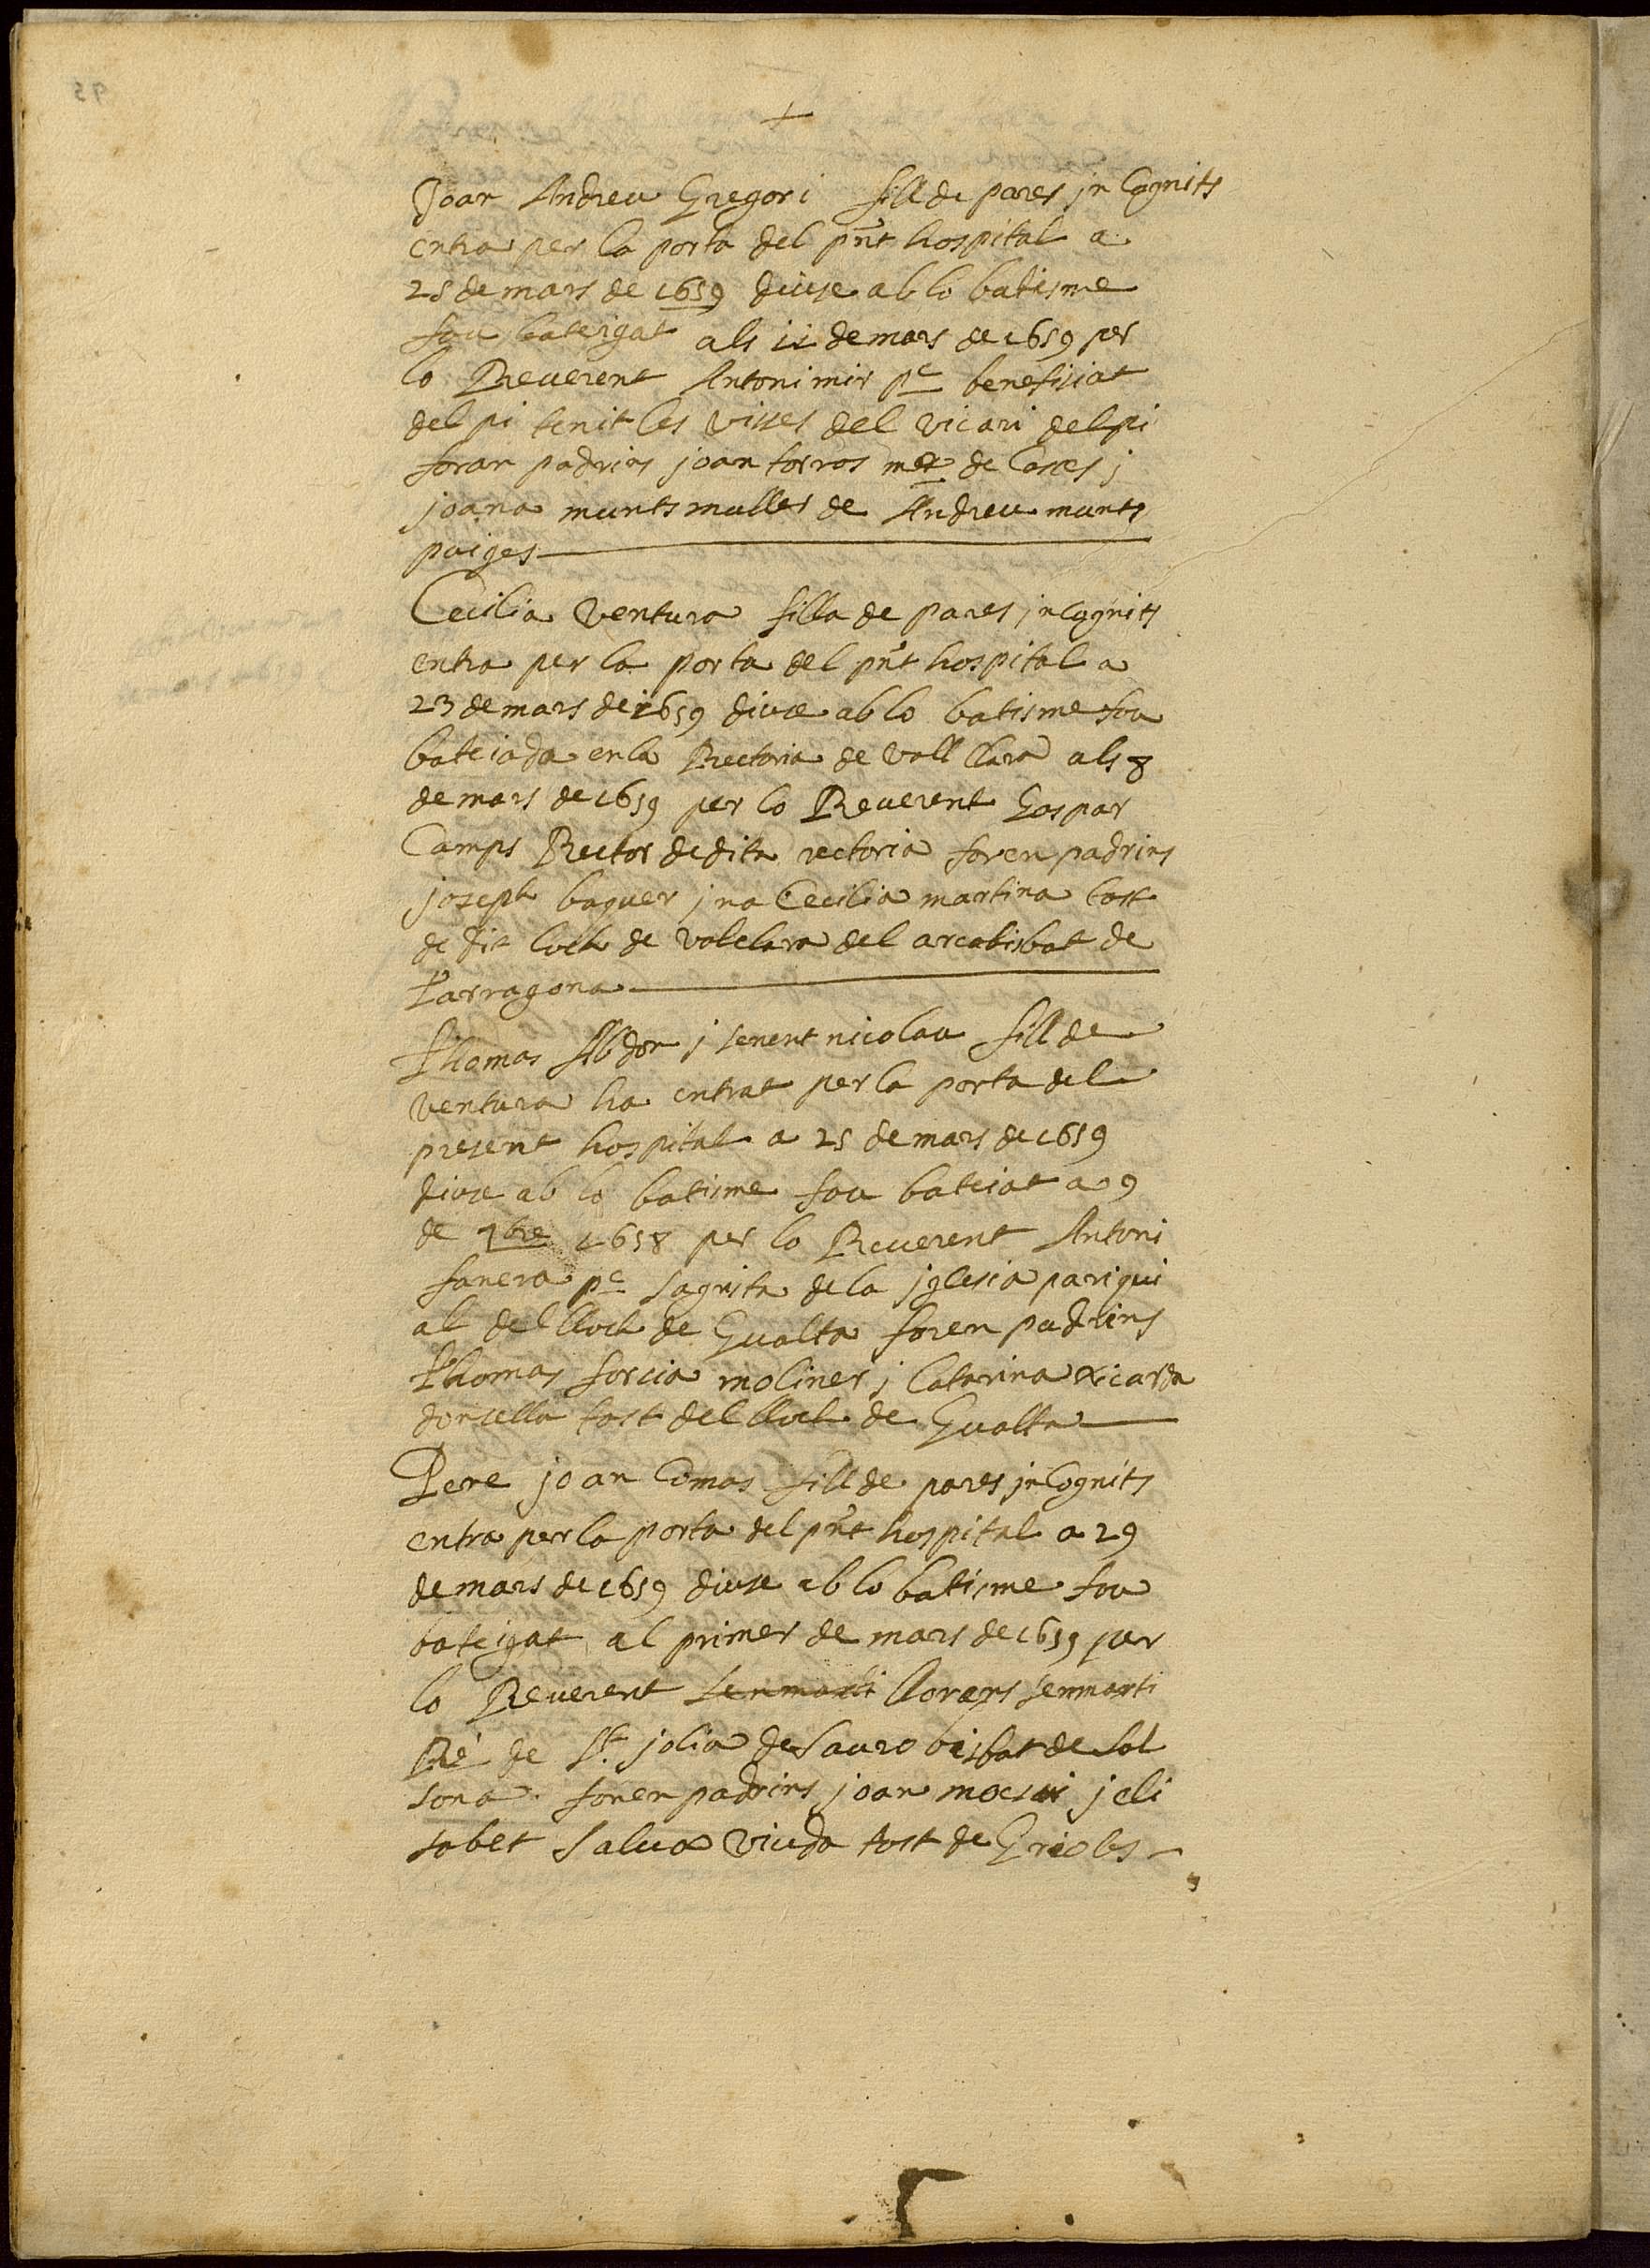 +
Joan Andreu Gregori fill de pares jn Cognits
entra per la porta del pnt hospital a
28 de mars de 1659 diuse ab lo batisme
fou bateigat als 11 de mars de 1659 per
lo Reuerent Antoni mir pe benefisiat
del pi tenit les visses del vicari del pi
foran padrins joan torros me de Cases j
joana munts muller de Andreu munts
paiges
Cecilia Ventura filla de pares jnCognits
entra per la porta del pnt hospital a
23 de mars de 1659 diuse ab lo batisme fou
bateiada en la Rectoria de Vall Clara als 8
de mars de 1659 per lo Reuerent Gaspar
Camps Rector de dita rectoria foren padrins
joseph baguer j na Cecilia martina tost
de dit loch de Valclara del arcabisbat de
Tarragona
Thomas Abdon j senent nicolau fill de
Ventura ha entrat per la porta del
present hospital a 25 de mars de 1659
diuse ab lo batisme fou bateiat a 9
de 9bre 1658 per lo Reuerent Antoni
fanera pe sagrista de la jglesia pariqui
al del lloch de Gualta foren padrins
Thomas forcia moliner j Catarina Ricarda
donsella tost del lloch de Gualta
Pere joan Comas fill de pares jnCognits
entra per la porta del pnt hospital a 29
de mars de 1659 diuse ab lo batisme fou
bateigat al primer de mars de 1659 per
lo Reuerent senmarti llorens senmarti
Re de St jolia de sauro bisbat de Sol
sona foren padrins joan j eli
sabet Salua viuda tost de